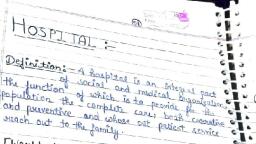 HOSPITAL :-
Definition:- A hospital is an integral part
of social and medical organization
the function of which is to provide for the
population the complete care, both curative
and preventive and whose out patient service
reach out to the family.